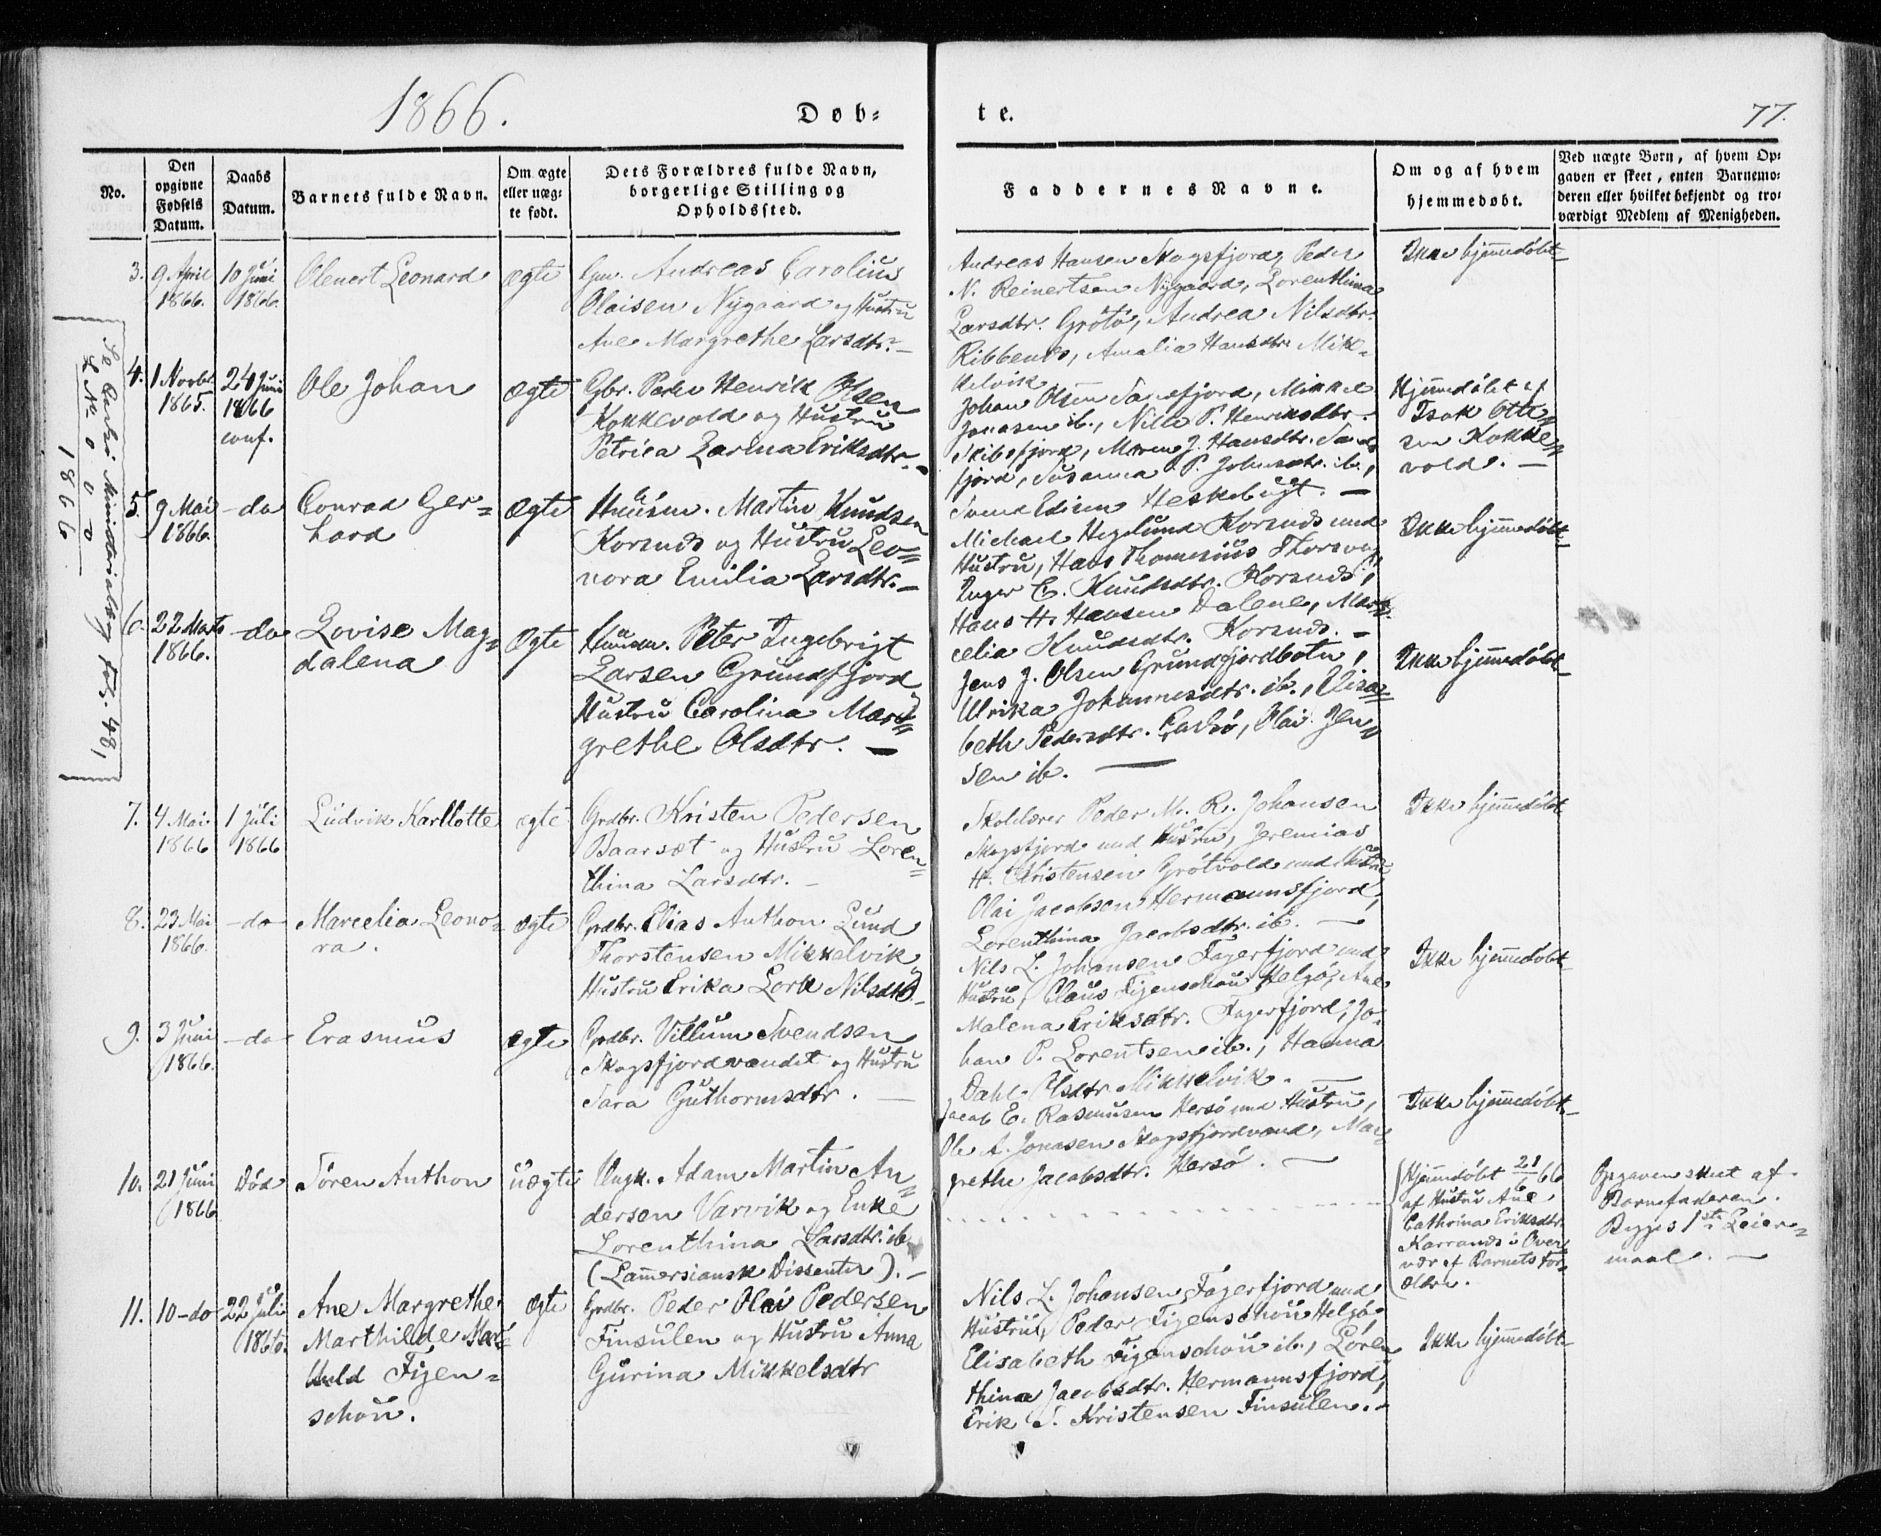 1866.
Døb-
te.
77.
No.
Den opgivne Fødsels Datum.
Daabs Datum.
Barnets fulde Navn.
Om ægte eller uæg-te født.
Dets Forældres fulde Navn, borgerlige Stilling og Opholdssted.
Faddernes Navne.
Om og af hvem hjemmedøbt.
Ved uægte Børn, af hvem Op-gaven er skeet, enten Barnemo-deren eller hvilket bekjendt og tro-værdigt Medlem af Menigheden.
3.
9 April
1866.
10 Juni
1866.
Olenert Leonard
ægte
Gm. Andreas Carolius
Olaisen Nygaard og Hustru
Ane Margrethe Larsdtr. –
Andreas Hansen Skogsfjord, Peder
N. Reinertsen Nygaard, Lorenthina
Larsdtr. Grötö, Andrea Nilsdtr.
Ribbenes, Amalia Hansdtr. Mik-
kelvik
Ikke hjemmedøbt
4.
1 Novbr.
1865.
24 Juni
1866
conf.
Ole Johan
ægte
Gbr. Peder Henrik Olsen
Kokkevold og Hustru
Petrica Larina Eriksdtr. –
Johan Olsen fjord, Mikkel
Jonasen ib., Nille P. Henriksdtr.
Skibsfjord, Maren J. Hansdtr.
fjord, Susanna P. Johnsdtr. ib.,
Svend Edisen Heskebugt. –
Hjemmedøbt af
Isak Otte-
sen Kokke-
vold. –
5.
9 Mai
1866.
– do
Conrad Ger-
hard
ægte
Huusm. Martin Knudsen
Korsnes og Hustru Leo-
nora Emilia Larsdtr. –
Michael Hegelund Korsnes med
Hustru, Hans Thomesius Thorsvog,
Inger E. Knudsdtr. Korsnes,
Hans H. Hansen Dalene, Mar-
celia Knudsdtr. Korsnes. –
Ikke hjemmedøbt
6.
22 Marts
1866.
– do
Lovise Mag-
dalena
Ægte
Huusm. Peter Ingebrigt
Larsen Grundfjord og
Hustru Carolina Mar-
grethe Olsdtr. –
Jens J. Olsen Grundfjordbotn,
Ulrika Johannesdtr. ib., Elisa-
beth Pedersdtr. Carlsö, Olai Jen-
sen ib. –
Ikke hjemmedøbt
Se Carlsö Ministerialbog fol. 48,
L No 0 0 0 0
1866
7.
4 Mai
1866
1 Juli
1866
Ludvik Karllotte
ægte
Grdbr. Kristen Pedersen
Baarsæt og Hustru Loren-
thina Larsdtr. –
Skolelærer Peder M. R. Johansen
Skogsfjord med Hustru, Jeremias
H. Christensen Grötvold med Hustru
Olai Jacobsen Hermannsfjord,
Lorenthina Jacobsdtr. ib. –
Ikke hjemmedøbt
8.
23 Mai
1866.
– do
Marcelia Leono-
ra.
ægte
Grdbr. Elias Anthon Lund
Thorstensen Mikkelvik og
Hustru Erika Lork Nilsdtr.
Nils L. Johansen Fagerfjord med
Hustru, Claus Figenschou Helgö, Ane
Malena Eriksdtr. Fagerfjord, Jo-
han P. Lorentsen ib., Hanna
Dahl Olsdtr Mikkelvik. –
Ikke hjemmedøbt
9.
3 Juni
1866.
– do
Erasmus
ægte
Grdbr. Villum Svendsen
Skogsfjordvandet og Hustru
Sara Guthormsdtr. –
Jacob E. Rasmusen Hersö med Hustru,
Ole A. Jonasen Skogsfjordvand, Mar-
grethe Jacobsdtr. Hersö. –
Ikke hjemmedøbt
10.
21 Juni
1866
Död
Sören Anthon
uægte
Ungk. Adam Martin An-
dersen Varvik og Enke
Lorenthina Larsdtr. ib.
(Lammersiansk Dissenter). –
Hjemmedøbt 21/6 66
af Hustru Ane
Cathrina Eriksdtr.
Karranes i Over-
vær af Barnets For-
ældre.
Opgaven skeet af
Barnefaderen.
Begges 1ste Leier-
maal. –
11.
10 – do
22 Juli
1866.
Ane Margrethe
Marthilde
Figen-
schou.
Ægte
Grdbr. Peder Olai Pedersen
Finsulen og Hustru Anna
Gurina Mikkelsdtr
Nils L. Johansen Fagerfjord med
Hustru, Peder Figenschou Helgö,
Elisabeth Figenschou ib., Loren-
thina Jacobsdtr. Hermannsfjord,
Erik J. Kristensen Finsulen. –
Ikke hjemmedøbt